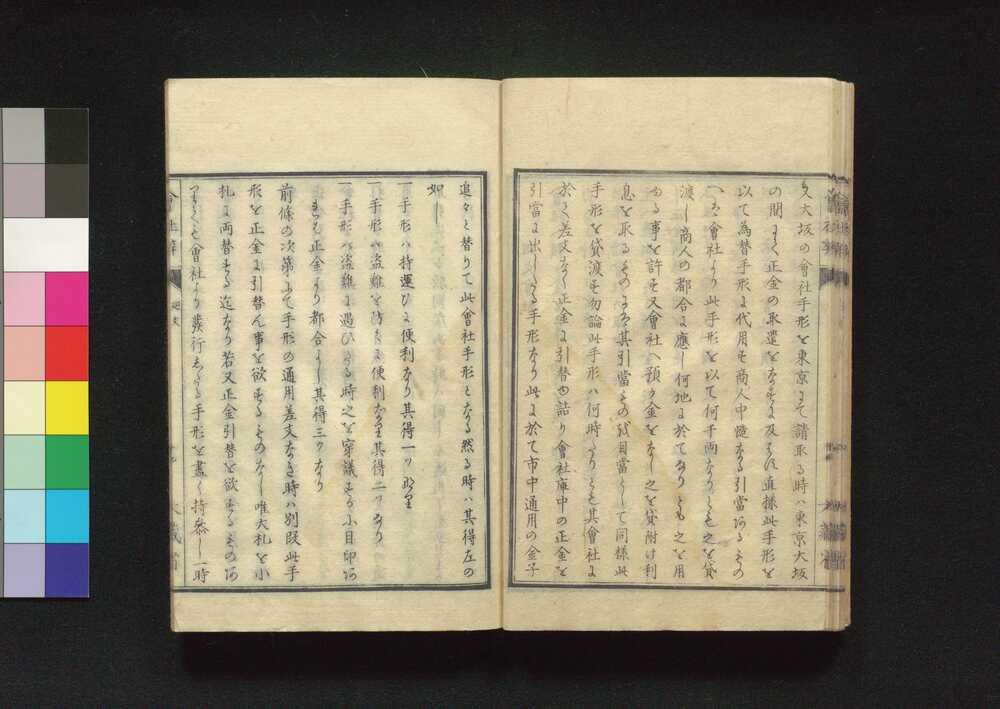 又大坂の會社手形を東京にて請取る時ハ東京大坂
の間にて正金の取遣をなすに及はす直樣此手形を
以て為替手形に代用す商人中慥なる引當あるもの
へハ會社より此手形を以て何千両なりとも之を貸
渡し商人の都合に應し何地に於てなりとも之を用
ゆる事を許す又會社へ預り金をなし之を貸附け利
息を取るものよハ其引當もの或目當にして同樣此
手形を貸渡す勿論此手形ハ何時たりとも其會社に
於て差支なく正金に引替由詰り會社庫中の正金を
引當に出したる手形なり此に於て市中通用の金子
追々と替りて此會社手形となる然る時ハ其得左の
如し
一手形ハ持運ひに便利なり其得一ツなり
一手形ハ盗難を防くに便利なり其得二ツなり
一手形ハ盗難に遇ひたる時之を穿議するに小目印あ
れは正金より都合よし其得三ツなり
前條の次第にて手形の通用差支なき時ハ別段此手
形を正金に引替ん事を欲するものなし唯大札を小
札に両替する迄なり若又正金引替を欲するものあ
りとも會社より發行したる手形を盡く持参し一時
會社辨